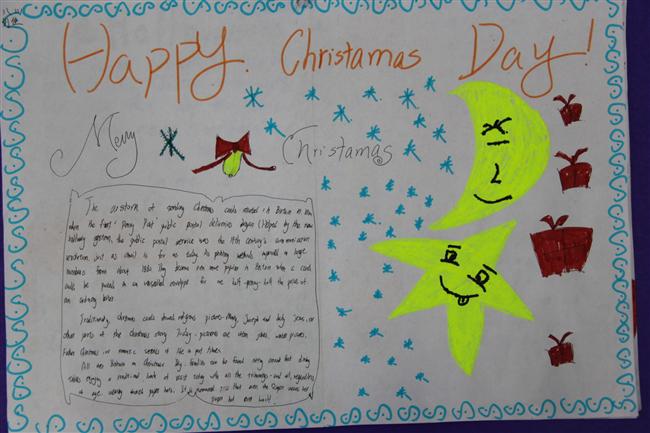 Happy Christamas Day!
Merry Christamas
The custom of sending Christmas cards started in Britain in
when the first 'Penny Post' public postal deliveries began (Helped by the new
railway system, the public postal service was the 19th century's communication
revolution, just as email is for us today. As printing methods
numbers from about 1860. They became even more popular in Britain when a card
could be posted in an unsealed envelope for one half-penny - half the price of
an ordinary letter.
Traditionally, cards showed religious pictures - Mary, Joseph and baby Jesus, or
other parts of the Christmas story. Today, pictures are often jokes, winter pictures,
Father Christmas, or romantic scenes of life in past times.
All over Britain on Christmas Day families can be found sitting around their dining
tables enjoying a traditional lunch of roast turkey with all the trimmings - and all, regardless
of age, wearing coloured paper hats. It is rumoured that even the Queen wears her
paper hat over lunch!